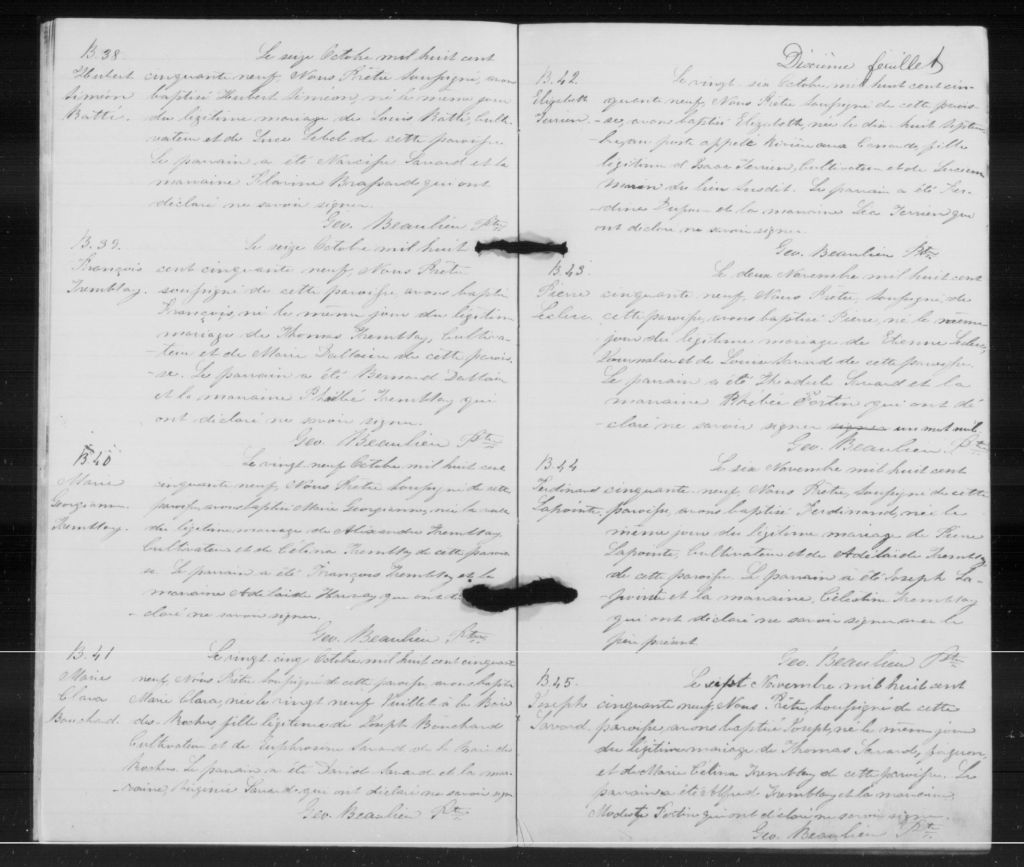 B. 38.
Hubert
Siméon
Batté.
Le seize Octobre mil huit cent
cinquante neuf, Nous Prêtre soussigné, avons
baptisé Hubert Siméon, né le même jour
du légitime mariage de Louis Batté, Culti-
-vateur et de Luce Lebel de cette paroisse.
Le parrain a été Narcisse Savard et la
marraine Flavine Brassard qui ont
déclaré ne savoir signer.
Geo. Beaulieu Ptre
B. 39.
François
Tremblay.
Le seize Octobre mil huit
cent cinquante neuf, Nous Prêtre
soussigné de cette paroisse, avons baptisé
François, né le même jour du légitime
mariage de Thomas Tremblay, Cultiva-
-teur et de Marie Dallaire de cette parois-
-se. Le parrain a été Bernard Dallaire
et la marraine Tremblay qui
ont déclaré ne savoir signer.
Geo. Beaulieu Ptre
B. 40
Marie
Georgianne
Tremblay.
Le vingt neuf Octobre mil huit cent
cinquante neuf, Nous Prêtre soussigné de cette
paroisse, avons baptisé Marie Georgianne, née la veille
du légitime mariage de Alexandre Tremblay
Cultivateur et de Célina Tremblay de cette parois-
se. Le parrain a été François Tremblay et la
marraine Adelaide Harvay, qui ont dé
-claré ne savoir signer.
Geo. Beaulieu Ptre
B. 41
Marie
Clara
Bouchard.
Le vingt cinq Octobre, mil huit cent cinquante
neuf, Nous Prêtre soussigné de cette paroisse, avons baptisé
Marie Clara, née le vingt neuf Juillet à la Baie
des Rochers fille légitime de Joseph Bouchard
Cultivateur et de Euphrosine Savard de la Baie des
Rochers. Le parrain a été David Savard et la mar-
-raine, Savard qui ont déclaré ne savoir signer
Geo. Beaulieu Ptre
Dixième feuillet
B. 42.
Elizabeth
Terrien.
Le vingt six Octobre, mil huit cent cin-
quante neuf, Nous Prêtre soussigné de cette parois-
-se, avons baptisé Elizabeth, née le dix huit Septem-
-bre, au poste appelé fille
légitime d'Isaac Terrien, Cultivateur et de
Morin du lieu susdit. Le parrain a été Fer-
-dinand et la marraine Léa Terrien qui
ont déclaré ne savoir signer.
Geo. Beaulieu Ptre
B. 43.
Pierre
Leclerc.
Le deux Novembre mil huit cent
cinquante neuf, Nous Prêtre, soussigné, de
cette paroisse, avons baptisé Pierre, né le même
jour du légitime mariage de Etienne Leclerc,
Journalier et de Louise Savard de cette paroisse.
Le parrain a été Théodule Savard et la
marraine Phébée Fortin qui ont dé-
-claré ne savoir signer signer un mot nul
Geo. Beaulieu Ptre
B. 44
Ferdinand
Lapointe.
Le six Novembre mil huit cent
cinquante neuf, Nous Prêtre, soussigné de cette
paroisse, avons baptisé Ferdinand, né le
même jour du légitime mariage de Pierre
Lapointe, Cultivateur et de Adelaide Tremblay
de cette paroisse. Le parrain a été Joseph La-
-pointe et la marraine, Célestine Tremblay
qui ont déclaré ne savoir signer avec le
père présent.
Geo. Beaulieu Ptre
B. 45.
Joseph
Savard.
Le sept Novembre mil huit cent
cinquante neuf, Nous Prêtre, soussigné de cette
paroisse, avons baptisé Joseph, né le même jour
du légitime mariage de Thomas Savard,
et de Marie Célina Tremblay de cette paroisse. Le
parrain a été Alfred Tremblay et la marraine
Modeste Fortin qui ont déclaré ne savoir signer.
Geo. Beaulieu Ptre